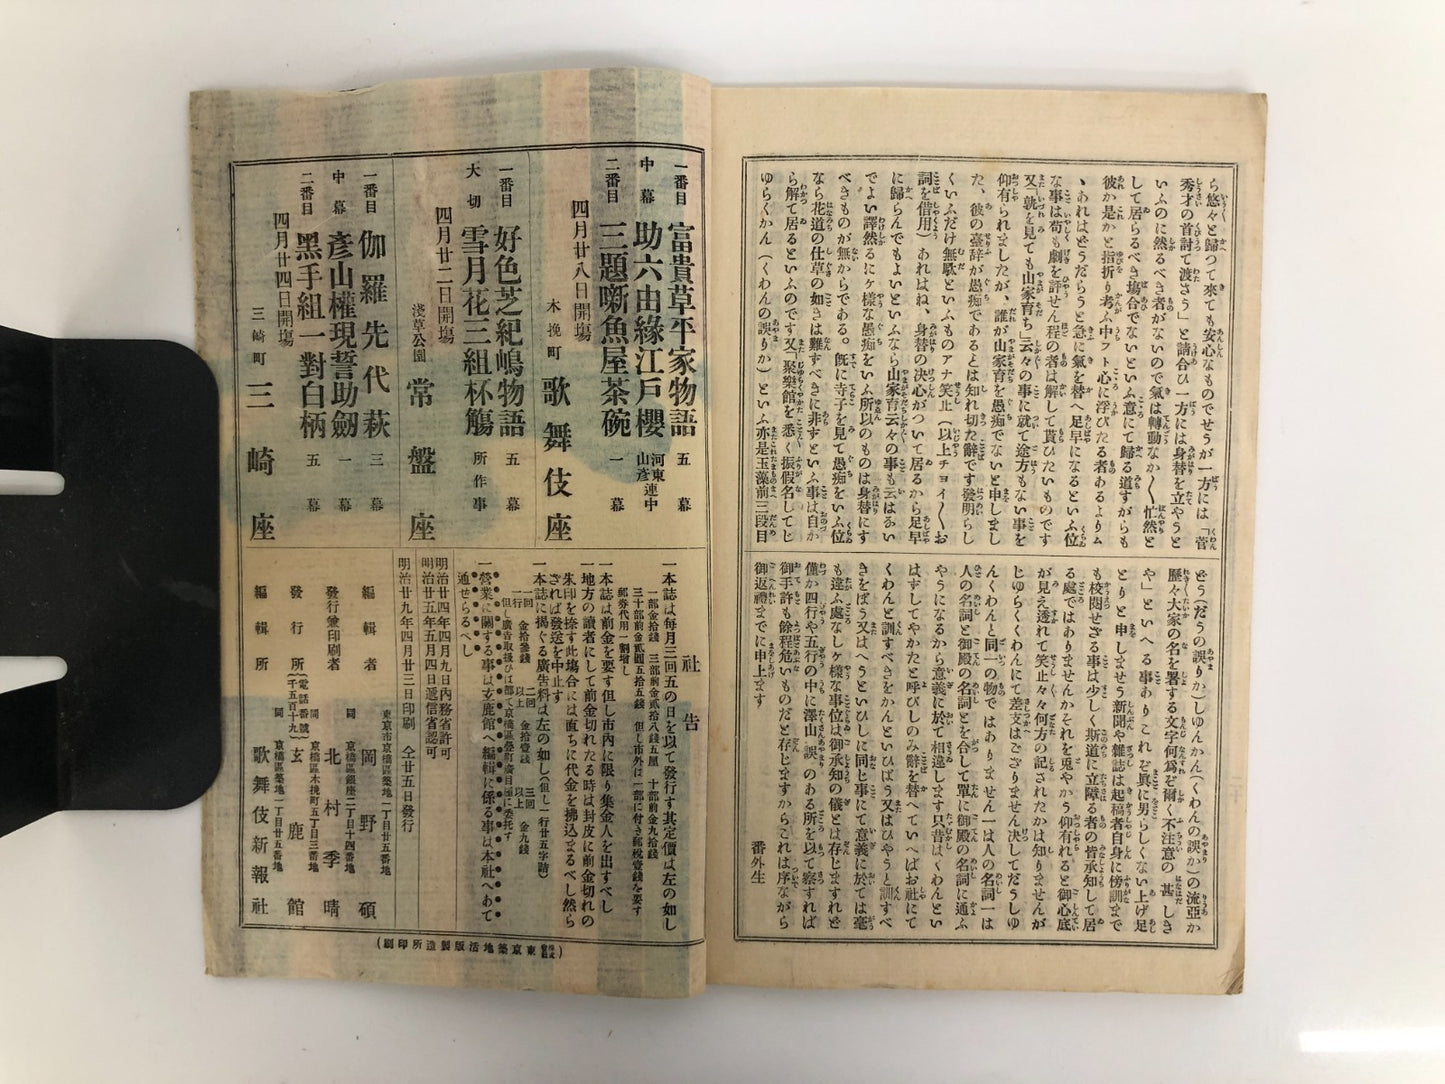 ら悠々と歸つて來ても安心なものでせうが一方には「菅
秀才の首討て渡さう」と請合ひ一方には身替を立やうと
いふのに然るべき者がないので氣は轉動なか〱忙然と
して居らるべき塲合でないといふ意にて歸る道すがらも
彼か是かと指折り考ふ中フト心に浮びたる者あるよりム
ヽあれはどうだらうと急に氣を替へ足早になるといふ位
な事は苟も劇を評せん程の者は解して貰ひたいものです
又「孰を見ても山家育ち」云々の事に就て途方もない事を
仰有られましたが、誰が山家育を愚痴でないと申しまし
た、彼の臺辞が愚痴であるとは知れ切た辭です發明らし
くいふだけ無駄といふものアナ笑止(以上チョイ〱お
詞を借用)あれはね、身替の決心がついて居るから足早
に歸らんでもよいといふなら山家育云々の事も云はない
でよい譯然るにケ様な愚痴をいふ所以のものは身替にす
べきものが無からである。既に寺子を見て愚痴をいふ位
なら花道の仕草の如きは難すべきに非すといふ事は自か
ら解て居るといふのです又「聚樂館を悉く振假名してじ
ゆらくかん(くわんの誤りか)といふ亦是玉藻前三段目
どう(だうの誤りか)しゆんかん(くわんの誤か)の流亞か
歴々大家の名を署する文字何爲ぞ爾く不注意の甚しき
や」といへる事ありこれぞ眞に男らしくない上げ足
とりと申しませう新聞や雜誌は起稿者自身に傍訓まで
も校閲せざる事は少しく斯道に立障る者の皆承知して居
る處ではありませんかそれを兎やかう仰有れると御心底
が見え透れて笑止々々何方の記されたかは知りませんが
じゆらくくわんにて差支はござりません决してだうしゆ
んくわんと同一の物ではありません一は人の名詞一は
人の名詞と御殿の名詞とを合して單に御殿の名詞に通ふ
やうになるから意義に於て相違します只昔はくわんとい
はずしてやかたと呼びしのみ辭を替へていへばお社にて
くわんと訓すべきをかんといひば又はひやうと訓すべ
きをばう又はへうといひしに同じ事にて意義に於ては毫
も違ふ處なしケ様な事位は御承知の儀とは存じますれど
僅か四行や五行の中に澤山誤のある所を以て察すれば
御手許も餘程危いものだと存じますからこれは序ながら
御返禮までに申上ます　番外生
一番目　富貴草平家物語　五幕
中幕　助六由緣江戸櫻　河東連中　山彦
二番目　三題噺魚屋茶碗　一幕
四月廿八日開塲　木挽町　歌舞伎座
一番目　好色芝紀嶋物語　五幕
大切　雪月花三組杯觴　所作事
四月廿二日開塲　淺草公園　常盤座
一番目　伽羅先代萩　三幕
中幕　彦山權現誓助劔　一幕
二番目　黑手組一對白柄　五幕
四月廿四日開塲　三崎町　三崎座
社告
一本誌は毎月三回五の日を以て發行す其定價は左の如し
一部金拾錢　三部前金貳拾八錢五厘　十部前金九拾錢
三十部前金貳圓五拾五錢　但し市外は一部に付き郵税壹錢を要す
郵券代用一割増し
一本誌は前金を要す但し市内に限り集金人を出すべし
一地方の讀者にして前金切れたる時は封皮に前金切れの
朱印を捺す此塲合には直ちに代金を拂込まるべし然ら
ざれば發送を中止す
一本誌に揭ぐる廣告料は左の如し(但し一行廿五字詰)
一回一行　金拾參錢　二回以上　金拾壹錢　三回以上　金九錢
但し廣告取扱ひは都て京橋區疊町廣目屋に委托す
一營業に關する事は玄鹿館へ編輯に係る事は本社へあて
通せらるべし
明治廿四年四月九日内務省許可
明治廿五年五月四日遞信省認可
明治廿九年四月廿三日印刷　仝廿五日發行
東京市京橋區築地一丁目廿五番地
編輯者　岡野碩
同　京橋區銀座二丁目十四番地
發行兼印刷者　北村季晴
同　京橋區木挽町五丁目三番地
發行所　(電話番號千五百十九)　玄鹿館
同　京橋區築地一丁目廿五番地
編輯所　歌舞伎新報社
(株式會社東京築地活版製造所印刷)